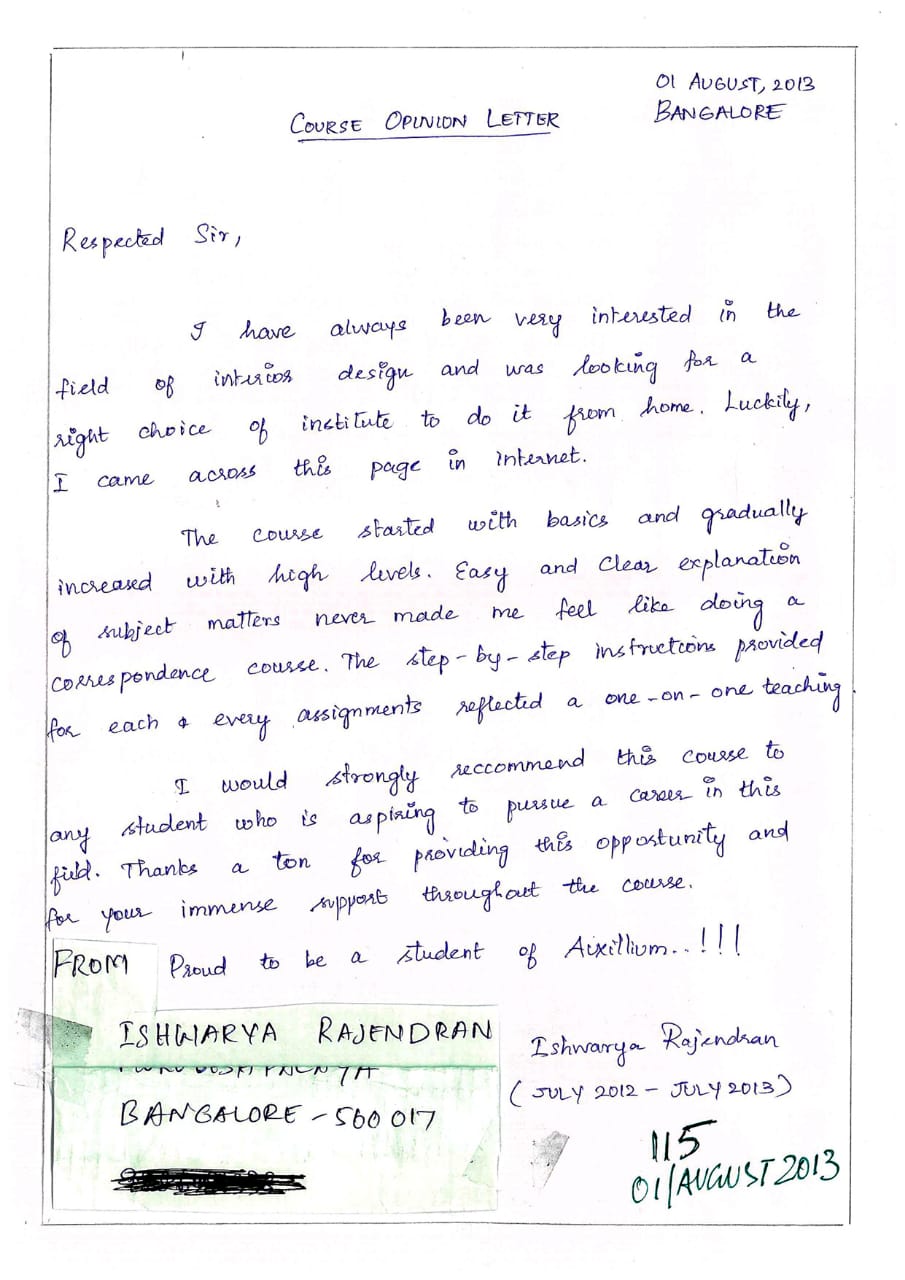 01 AUGUST, 2013
COURSE OPINION LETTER
BANGALORE
Respected Sir,
I have always been very interested in the
field of interior design and was looking for a
right choice of institute to do it from home. Luckily,
I came across this page in internet.
The course started with basics and gradually
increased with high levels. Easy and Clear explanation
of subject matters never made me feel like doing a
correspondence course. The step-by-step instructions provided
for each & every assignments reflected a one-on-one teaching.
I would strongly reccommend this course to
any student who is aspiring to pursue a career in this
field. Thanks a ton for providing this opportunity and
for your immense support throughout the course.
FROM
Proud to be a student of Auxillium..!!!
ISHWARYA RAJENDRAN
Ishwarya Rajendran
(JULY 2012 - JULY 2013)
BANGALORE - 560 017
115
01/AUGUST 2013